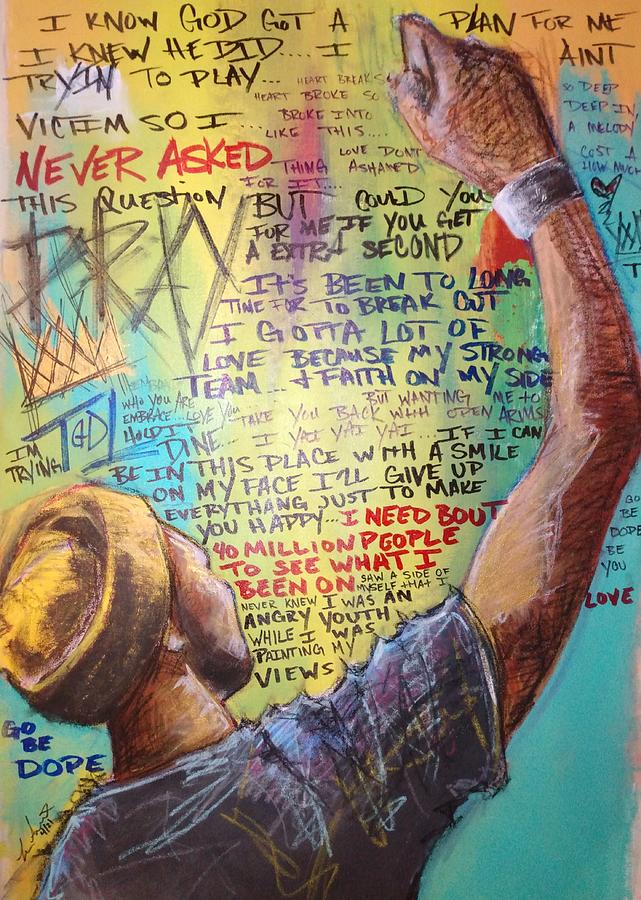 I KNOW GOD GOT A PLAN FOR ME
I KNEW HE DID.... I AINT
TRYIN TO PLAY...
HEART BREAKS
HEART BROKE SO
BROKE INTO
VICTIM SO I ...
LIKE THIS....
NEVER ASKED
LOVE DONT
THING ASHAMED
FOR IT....
THIS QUESTION BUT COULD YOU
FOR ME IF YOU GET
A EXTRA SECOND
PRAY
IT'S BEEN TO LONG
TIME FOR TO BREAK OUT
I GOTTA LOT OF
LOVE BECAUSE MY STRONG
TEAM... & FAITH ON MY SIDE
WHO YOU ARE
EMBRACE...LOVE YOU
HOLD IT
BUT WANTING ME TO
TAKE YOU BACK WITH OPEN ARMS
DINE... I YAI YAI YAI ... IF I CAN
BE IN THIS PLACE WITH A SMILE
ON MY FACE I'LL GIVE UP
EVERYTHANG JUST TO MAKE
YOU HAPPY...I NEED BOUT
40 MILLION PEOPLE
TO SEE WHAT I
BEEN ON
SAW A SIDE OF
MYSELF THAT I
NEVER KNEW I WAS AN
ANGRY YOUTH
WHILE I WAS
PAINTING MY
VIEWS
TGDL
IM
TRYING
SO DEEP
DEEP IN,
A MELODY
COST A
HOW MUCH
GO
BE
DOPE
BE
YOU
LOVE
GO
BE
DOPE